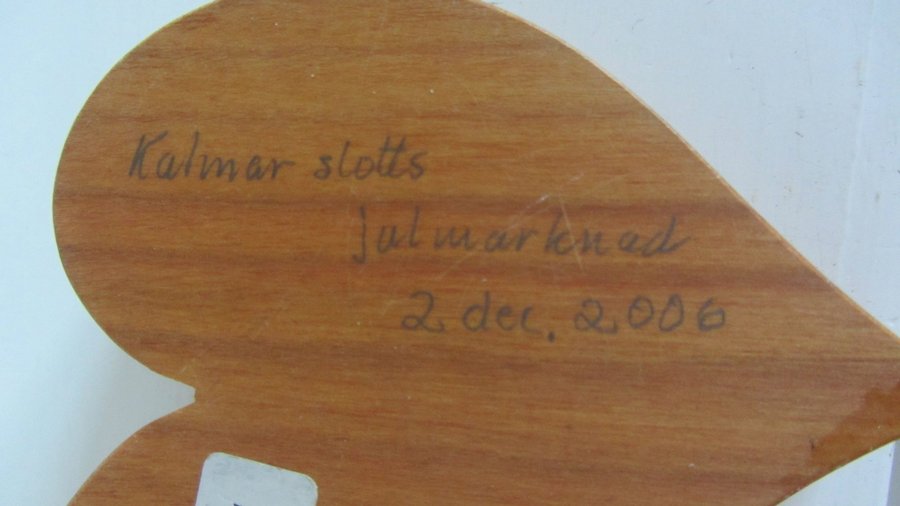 Kalmar slotts
julmarknad
2 dec. 2006